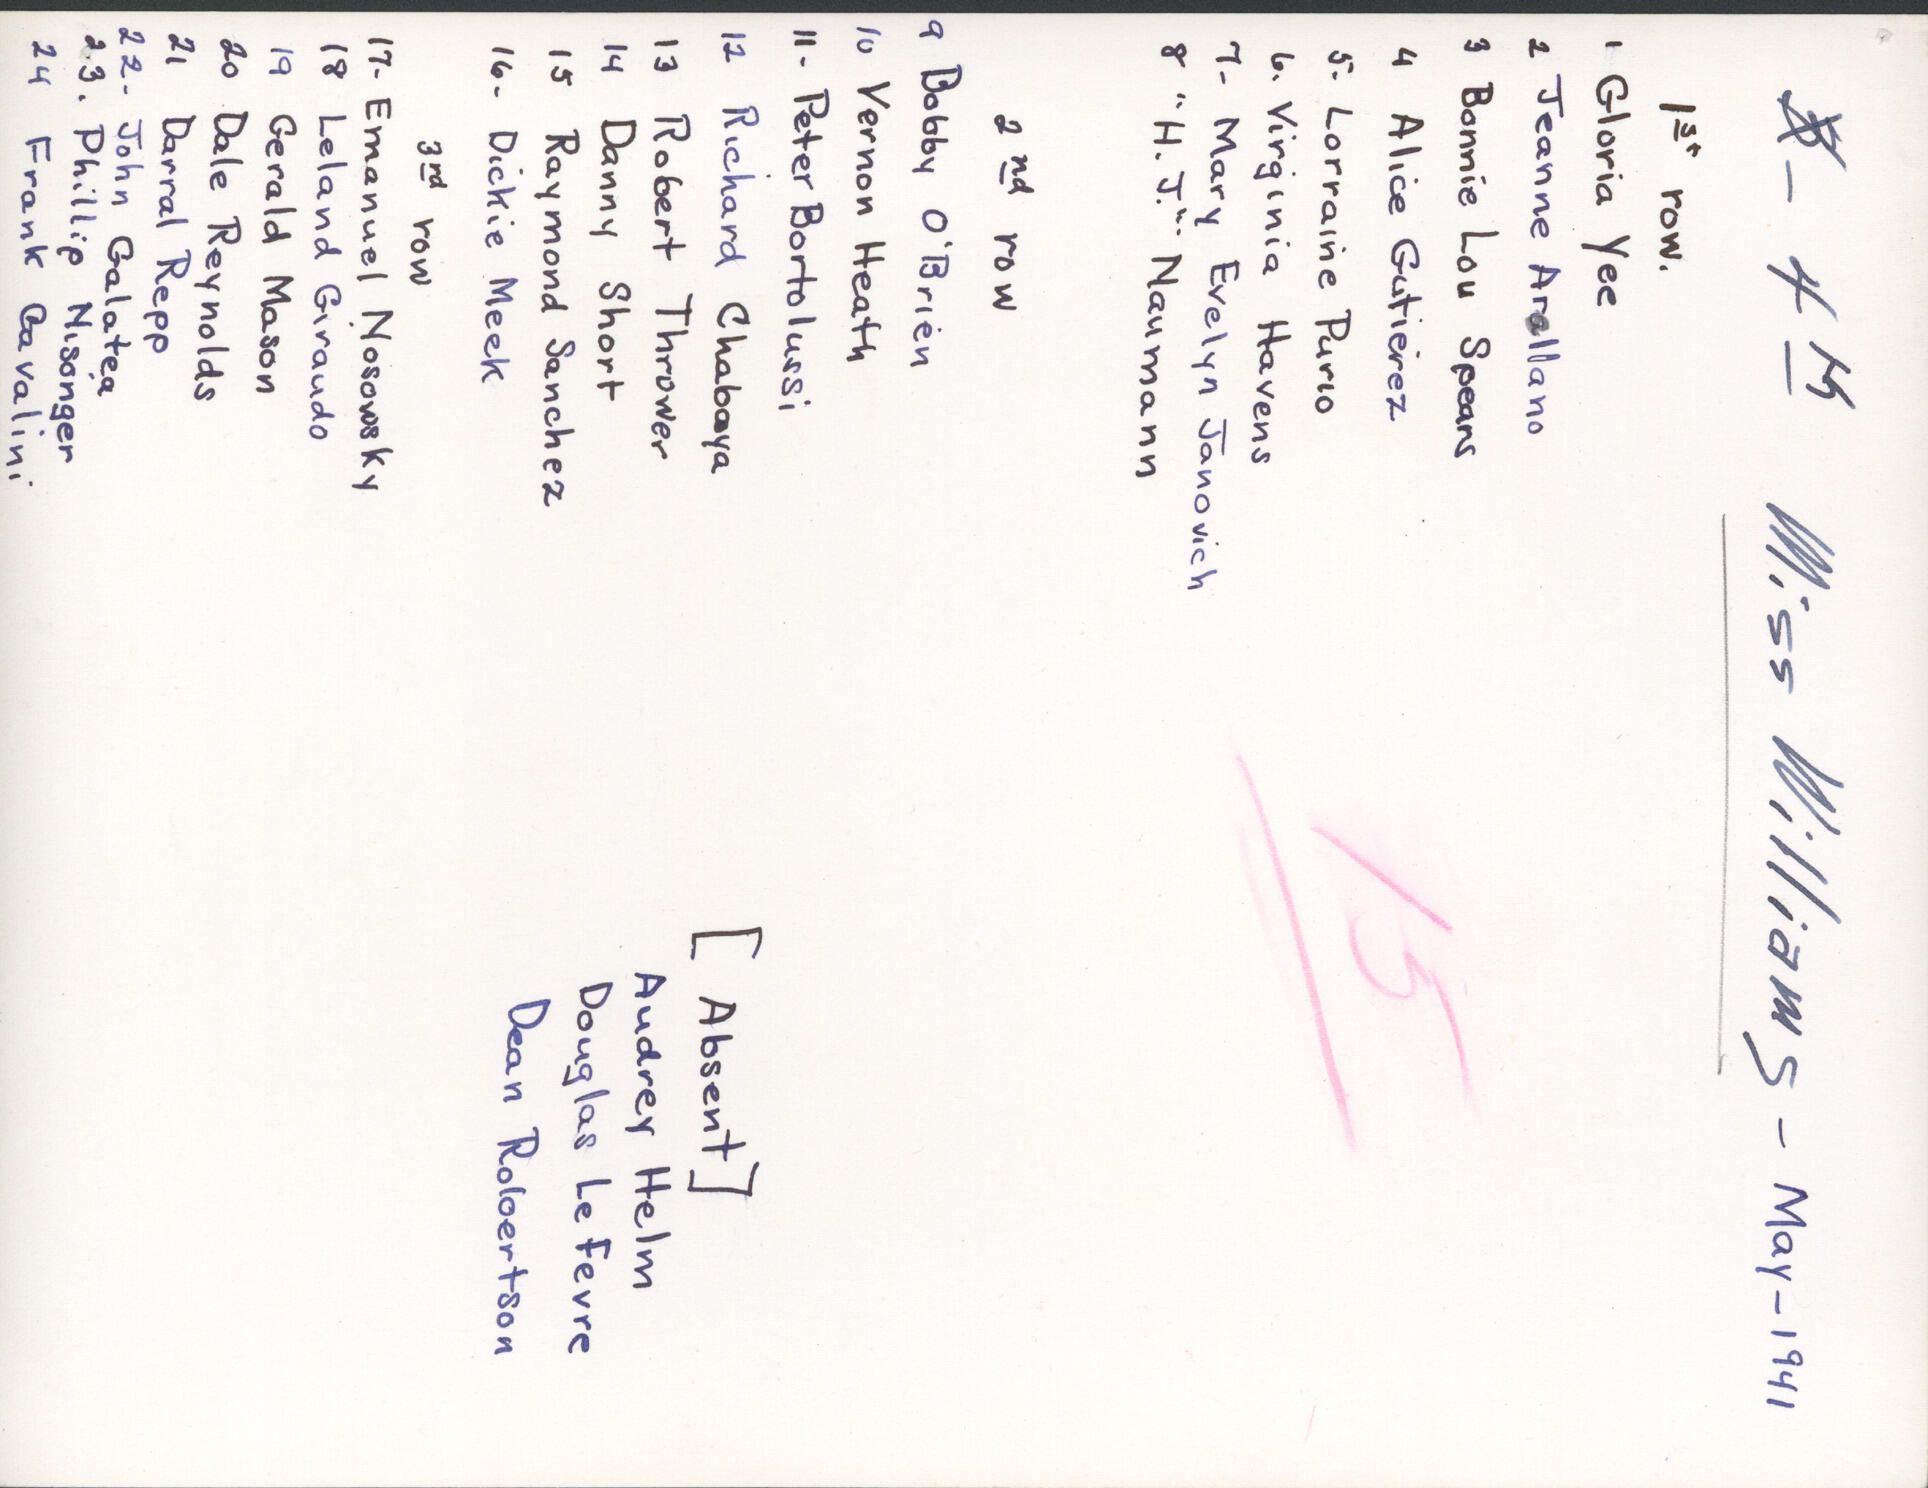 - 4 - 5 Miss Williams - May - 1941
1st row.
1 Gloria Yee
2 Jeanne Arallano
3 Bonnie Lou Spears
4 Alice Gutierez
5- Lorraine Purio
6. Virginia Havens
7- Mary Evelyn Janovich
8 "H. J." Naumann
2nd row
9 Bobby O'Brien
10 Vernon Heath
11- Peter Bortolussi
12 Richard Chaboya
13 Robert Thrower
14 Danny Short
15 Raymond Sanchez
16- Dickie Meek
3rd row
17- Emanuel Nosowsky
18 Leland Giraudo
19 Gerald Mason
20 Dale Reynolds
21 Darral Repp
22- John Galatea
23. Phillip Nisonger
24 Frank Cavalini
[Absent]
Audrey Helm
Douglas LeFevre
Dean Robertson
15